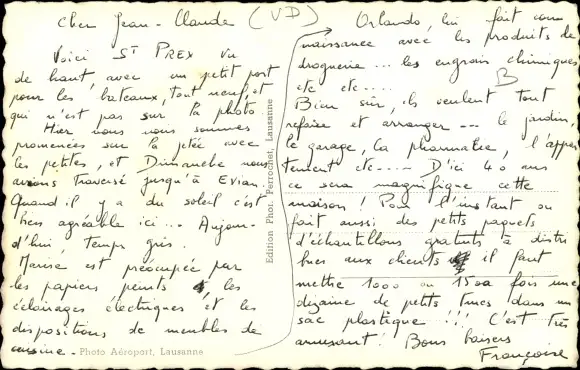 Cher Jean-Claude (VD)
Voici St PREX vu
de haut, avec un petit port
pour les bateaux, tout neuf, et
qui n'est pas sur la photo.
Hier nous nous sommes
promenées sur la jetée avec
les petites, et Dimanche nous
avions traversé jusqu'à Evian.
Quand il y a du soleil c'est
bien agréable ici... Aujour-
d'hui, temps gris.
Marise est préocupée par
les papiers peints les
éclairages électriques et les
dispositions de meubles de
cuisine.
Photo Aéroport, Lausanne
Edition Phot. Perrochet, Lausanne
Orlando, lui fait con
naissance avec les produits de
droguerie... les engrais chimiques
etc etc....
Bien sûr, ils veulent tout
refaire et arranger... le jardin,
le garage, la pharmacie, l'appar
tement etc.... D'ici 40 ans
ce sera magnifique cette
maison! Pour l'instant on
fait aussi des petits paquets
d'échantillons gratuits à distri
buer aux clients il faut
mettre 1000 ou 1500 fois une
dizaine de petits trucs dans un
sac plastique!!! C'est très
amusant! Bons baisers
Françoise